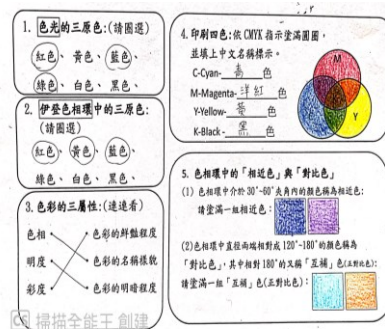 1. 色光的三原色:(請圈選)
紅色、黃色、藍色、
綠色、白色、黑色、
2. 伊登色相環中的三原色:
(請圈選)
紅色、黃色、藍色、
綠色、白色、黑色、
3. 色彩的三屬性:(連連看)
色相 色彩的鮮豔程度
明度 色彩的名稱樣貌
彩度 色彩的明暗程度
4. 印刷四色:依CMYK指示塗滿圓圈,
並填上中文名稱標示。
C-Cyan- 青 色
M-Magenta- 洋紅 色
Y-Yellow- 黃 色
K-Black- 黑 色
M
Y
5. 色相環中的「相近色」與「對比色」
(1) 色相環中介於30°~60°夾角內的顏色稱為相近色:
請塗滿一組相近色:
(2)色相環中直徑兩端相對成120°~180°的顏色稱為
「對比色」,其中相對180°的又稱「互補」色(正對比):
請塗滿一組「互補」色(正對比):
CS 掃描全能王 創建